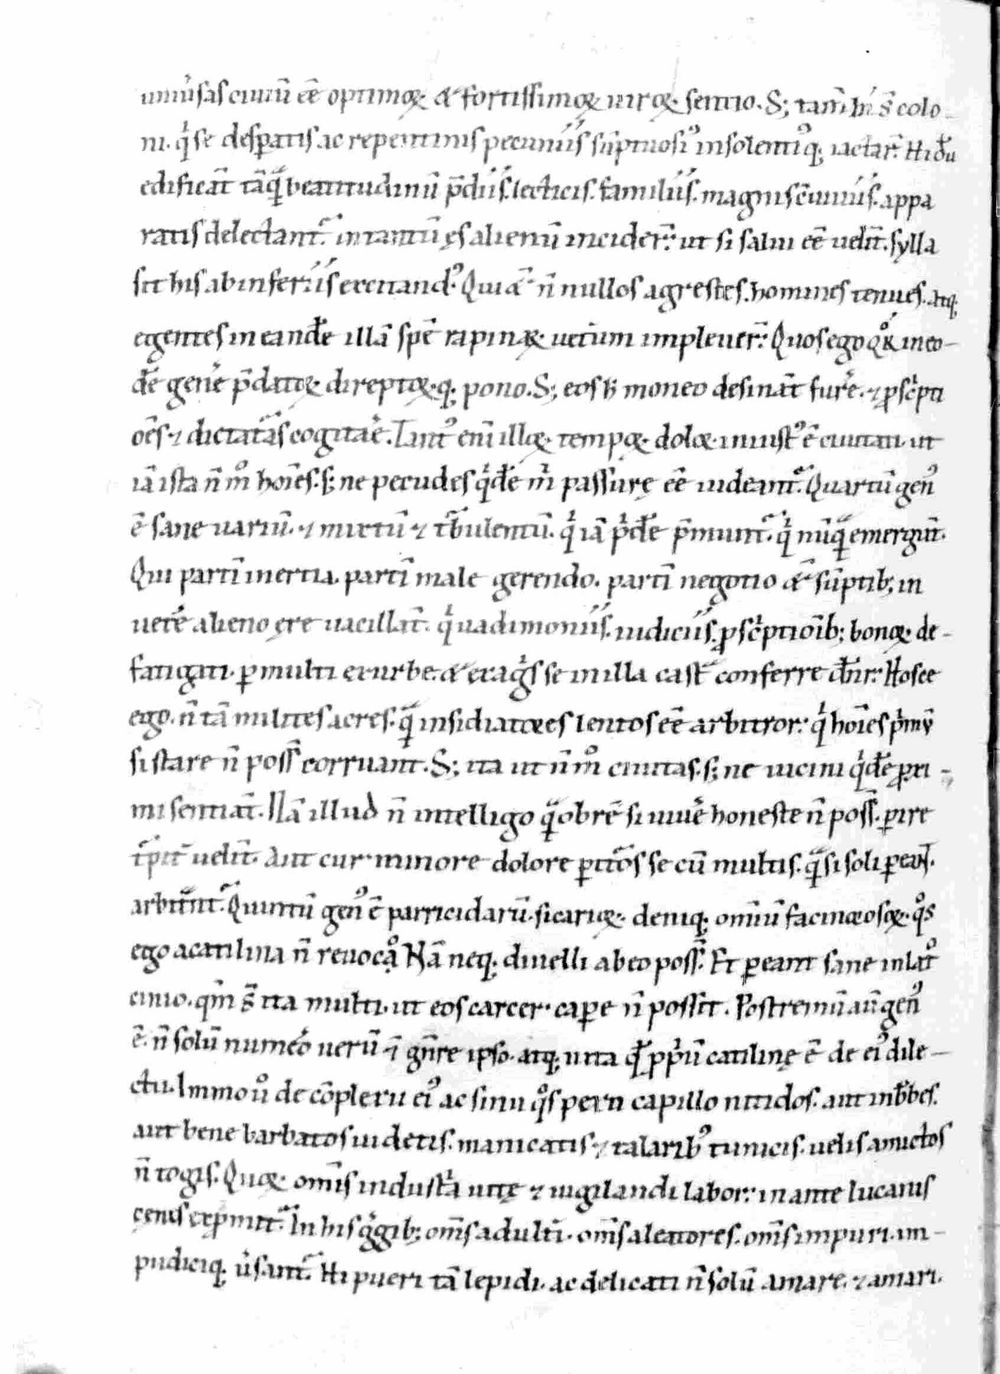 uniu͛sas ciuiū eē optimoꝝ & fortissimoꝝ uiroꝝ sentio. S; tam̄ hi s̄ colo
ni. qͥ se desꝑatis ac repentinis pecuniis sūptuosiꝰ insolentiꝰq; iactar̄. Hi dū
edificāt tāqᷓ beati tudinū p̄diis. lecticis. familiis. magnis cōuiuiis. appa
ratis delectant᷑. in tantū ęs alienū incider̄. ut si salui eē uelīt. sylla
sit his ab inferiis excitandꝰ. Qui &̄ n̄ nullos agrestes. homines tenues. atq;
egentes in eandē illā spē rapinaꝝ ueterum impleuer̄. Quos ego qͦs in eo
dē genēe p̄datoꝝ. direptoꝝ.q; pono. S; eos h̄ moneo desināt furēe. ⁊ ꝓscͥpti
oēs. ⁊ dictat̄as cogitar̄e. Tantꝰ eni͞ illoꝝ tempoꝝ dolor inustꝰ ē ciuitati. ut
iā ista n̄ mͦ hoīes. s; ne pecudes qͥdē mͥ passurę eē uideant᷑. Quartū genꝰ
ē sane uariū. ⁊ mixtū ⁊ t̄bulentū. qͥ iā pͥdē p̄munt᷑. qͥ nūqᷓ emergūt.
Qui partī inertia. partī male gerendo. partī negotio &̄ sūptib; in
ueterē alieno ęre uacillāt. qͥ uadimoniis. iudiciis. ꝓscͥptioīb; bonoꝝ de
fatigati. ꝑmulti ex urbe. & ex agͥs se in illa cast͛ conferre dn̄r. Hosce
ego. n̄ tā milites acres. qᷓ insidiatores lentos eē arbitror. qͥ hoīes pͥmū
si stare n̄ poss̄ corruant. S; ita ut n̄ mͦ ciuitas. s; ne uicini qͥdē ꝓxi
mi sentiāt. Nā illud n̄ intelligo qᷓobrē si uiuēe honeste n̄ poss̄. ꝑire
t̄pit͛ uelīt. Aut cur minore dolore ꝑitōs se cū multis. qᷓ si soli ꝑeāt.
arbit̄nt᷑. Quintū genꝰ ē parricidarū. sicarioꝝ. deniq; omniū facinorosoꝝ. qͦs
ego a catilina n̄ reuocͦ. Nā neq; diuelli ab eo poss̄. Et ꝑeant sane in latͦ
cinio. qm̄ s̄ ita multi. ut eos carcer. caꝑe n̄ possīt. Postremū aū genꝰ
ē. n̄ solū numeō uerū &̄ gn̄re ipso. atq; uita qd̄ ꝓpͥū catilinę ē de eiꝰ dile
ctu. Immo uͦ de cōplexu eiꝰ ac sinu qͦs pexo capillo nitidos. aut inb̄bes.
aut bene barbatos uidetis. manicatis. ⁊ talaribꝰ tunicis. uelis amictos
n̄ togis. Quoꝝ om̄is industͥa uitę ⁊ uigilandi labor. in ante lucanis
cęnis exp̄mit᷑. In his gͤgib; om̄s adulti͛. om̄s aleatores. om̄s impuri. im
pudiciq; u͛sant᷑. Hi pueri tā lepidi. ac delicati n̄ solū amare. ⁊ amari.